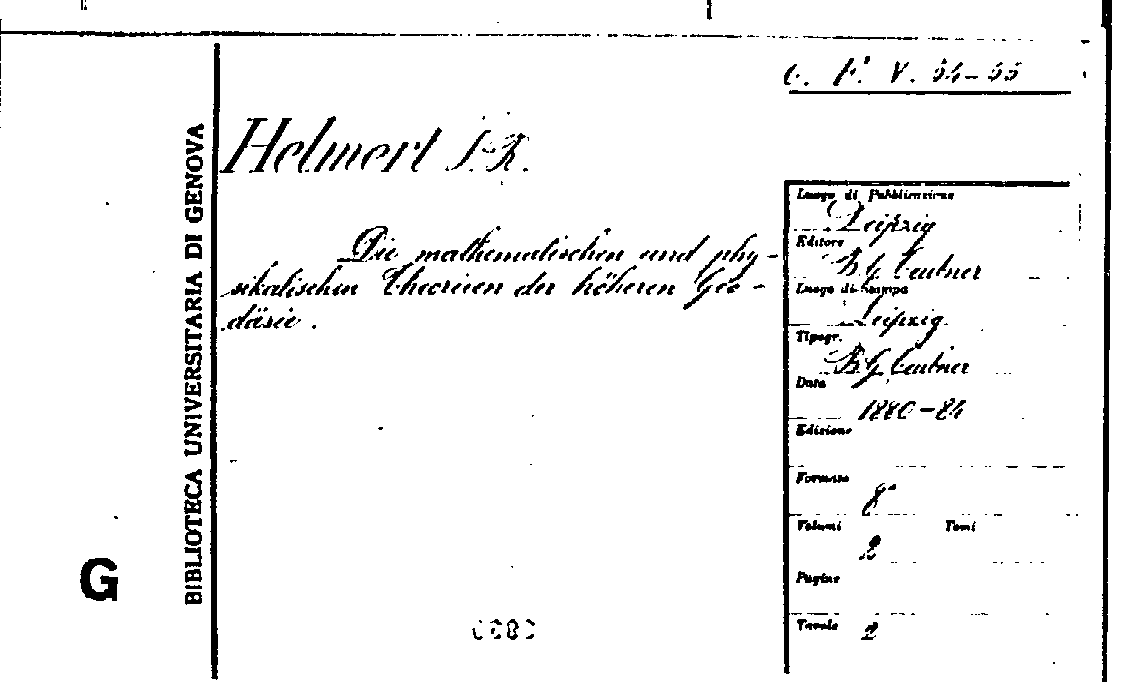 V. 54-55
Helmert F. R.
Die mathematischen und phy-
sikalischen Theorieen der höheren Geo-
däsie.
Luogo di Pubblicazione
Leipzig
Editore
B G Teubner
Luogo di Stampa
Leipzig
Tipogr.
B G Teubner
Data
1880-84
Edizione
Formato
8°
Volumi 2
Tomi
Pagine
Tavole 2
BIBLIOTECA UNIVERSITARIA DI GENOVA
G